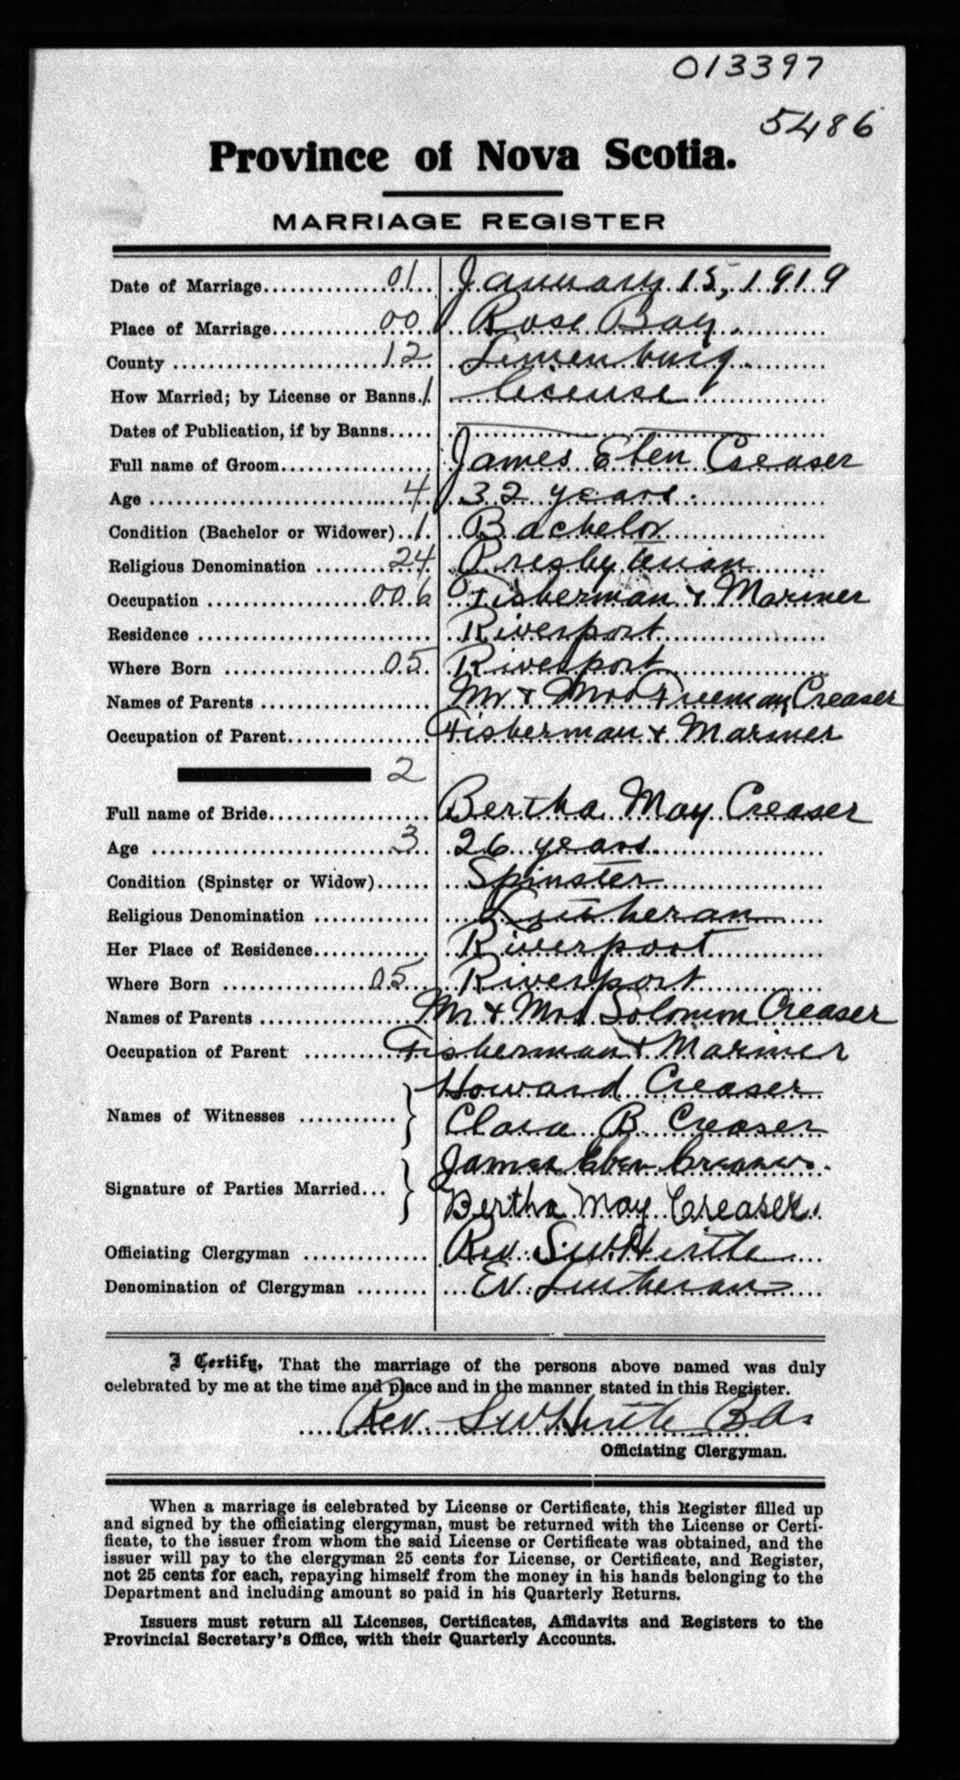 013397
5486
Province of Nova Scotia.
MARRIAGE REGISTER
Date of Marriage.............01. January 15, 1919
Place of Marriage.............00 Rose Bay
County .............12 Lunenburg
How Married; by License or Banns.1. license
Dates of Publication, if by Banns.....
Full name of Groom............. James Eben Creaser
Age .............4 32 years.
Condition (Bachelor or Widower)..1. Bachelor
Religious Denomination ........24 Presbyterian
Occupation .............006 Fisherman & Mariner
Residence ............. Riverport
Where Born .............05. Riverport
Names of Parents ............. Mr & Mrs Freeman Creaser
Occupation of Parent............. Fisherman & Mariner
2
Full name of Bride............. Bertha May Creaser
Age .............3. 26 years
Condition (Spinster or Widow)...... Spinster
Religious Denomination ............. Lutheran
Her Place of Residence............. Riverport
Where Born .............05. Riverport
Names of Parents ............. Mr & Mrs Solomon Creaser
Occupation of Parent ............. Fisherman & Mariner
Howard Creaser
Names of Witnesses ...........
Clara B. Creaser
James Eben Creaser.
Signature of Parties Married...
Bertha May Creaser.
Officiating Clergyman ............. Rev. S W Hirtle
Denomination of Clergyman ........ Ev. Lutheran
I Certify, That the marriage of the persons above named was duly
celebrated by me at the time and place and in the manner stated in this Register.
Rev. S W Hirtle B A.
Officiating Clergyman.
When a marriage is celebrated by License or Certificate, this Register filled up
and signed by the officiating clergyman, must be returned with the License or Certi-
ficate, to the issuer from whom the said License or Certificate was obtained, and the
issuer will pay to the clergyman 25 cents for License, or Certificate, and Register,
not 25 cents for each, repaying himself from the money in his hands belonging to the
Department and including amount so paid in his Quarterly Returns.
Issuers must return all Licenses, Certificates, Affidavits and Registers to the
Provincial Secretary's Office, with their Quarterly Accounts.